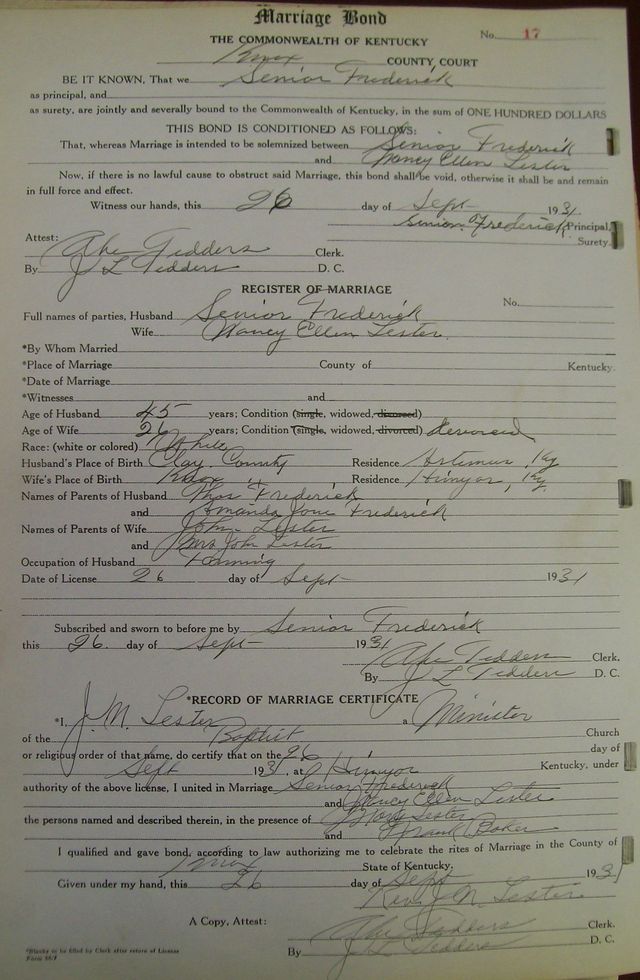 Marriage Bond
THE COMMONWEALTH OF KENTUCKY
No. 17
Knox COUNTY COURT
BE IT KNOWN, That we Senior Frederick
as principal, and
as surety, are jointly and severally bound to the Commonwealth of Kentucky, in the sum of ONE HUNDRED DOLLARS
THIS BOND IS CONDITIONED AS FOLLOWS:
That, whereas Marriage is intended to be solemnized between Senior Frederick
and Nancy Ellen Lester
Now, if there is no lawful cause to obstruct said Marriage, this bond shall be void, otherwise it shall be and remain
in full force and effect.
Witness our hands, this 26 day of Sept 1931.
Senior Frederick Principal,
Surety.
Attest:
Abe Tedders Clerk.
By J L Tedders D. C.
REGISTER OF MARRIAGE
No.
Full names of parties, Husband Senior Frederick
Wife Nancy Ellen Lester.
*By Whom Married
*Place of Marriage County of Kentucky.
*Date of Marriage
*Witnesses and
Age of Husband 45 years; Condition (single, widowed, divorced)
Age of Wife 26 years; Condition (single, widowed, divorced)
Race: (white or colored) White
Husband's Place of Birth Clay County Residence Artemus, Ky
Wife's Place of Birth Knox Residence Hinyar, Ky.
Names of Parents of Husband Thos Frederick
and Amanda Frederick
Names of Parents of Wife John Lester
and Mrs John Lester
Occupation of Husband Farming
Date of License 26 day of Sept 1931
Subscribed and sworn to before me by Senior Frederick
this 26. day of Sept 1931
Abe Tedders Clerk.
By J L Tedders D. C.
*RECORD OF MARRIAGE CERTIFICATE
*I, J. M. Lester a Minister
of the Baptist Church
or religious order of that name, do certify that on the 26 day of
Sept 1931, at Hinyar Kentucky, under
authority of the above license, I united in Marriage Senior Frederick
and Nancy Ellen Lester
the persons named and described therein, in the presence of Lester
and Frank Baker
I qualified and gave bond, according to law authorizing me to celebrate the rites of Marriage in the County of
Knox State of Kentucky.
Given under my hand, this 26 day of Sept 1931
Rev. J. M. Lester
A Copy, Attest: Abe Tedders Clerk.
By J L Tedders D. C.
*Blanks to be filled by Clerk after return of License